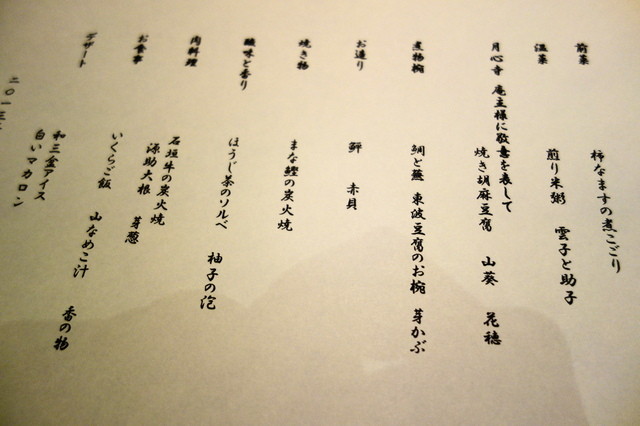 前菜　柿なますの煮こごり
温菜　煎り米粥　雲子と助子
月心寺　庵主様に敬意を表して
焼き胡麻豆腐　山葵　花穂
煮物椀　鯛と蕪　東波豆腐のお椀　芽かぶ
お造り　鮃　赤貝
焼き物　まな鰹の炭火焼
酸味と香り　ほうじ茶のソルベ　柚子の泡
肉料理　石垣牛の炭火焼
源助大根　芽葱
お食事　いくらご飯　山なめこ汁　香の物
デザート　和三盆アイス
白いマカロン
二〇一三